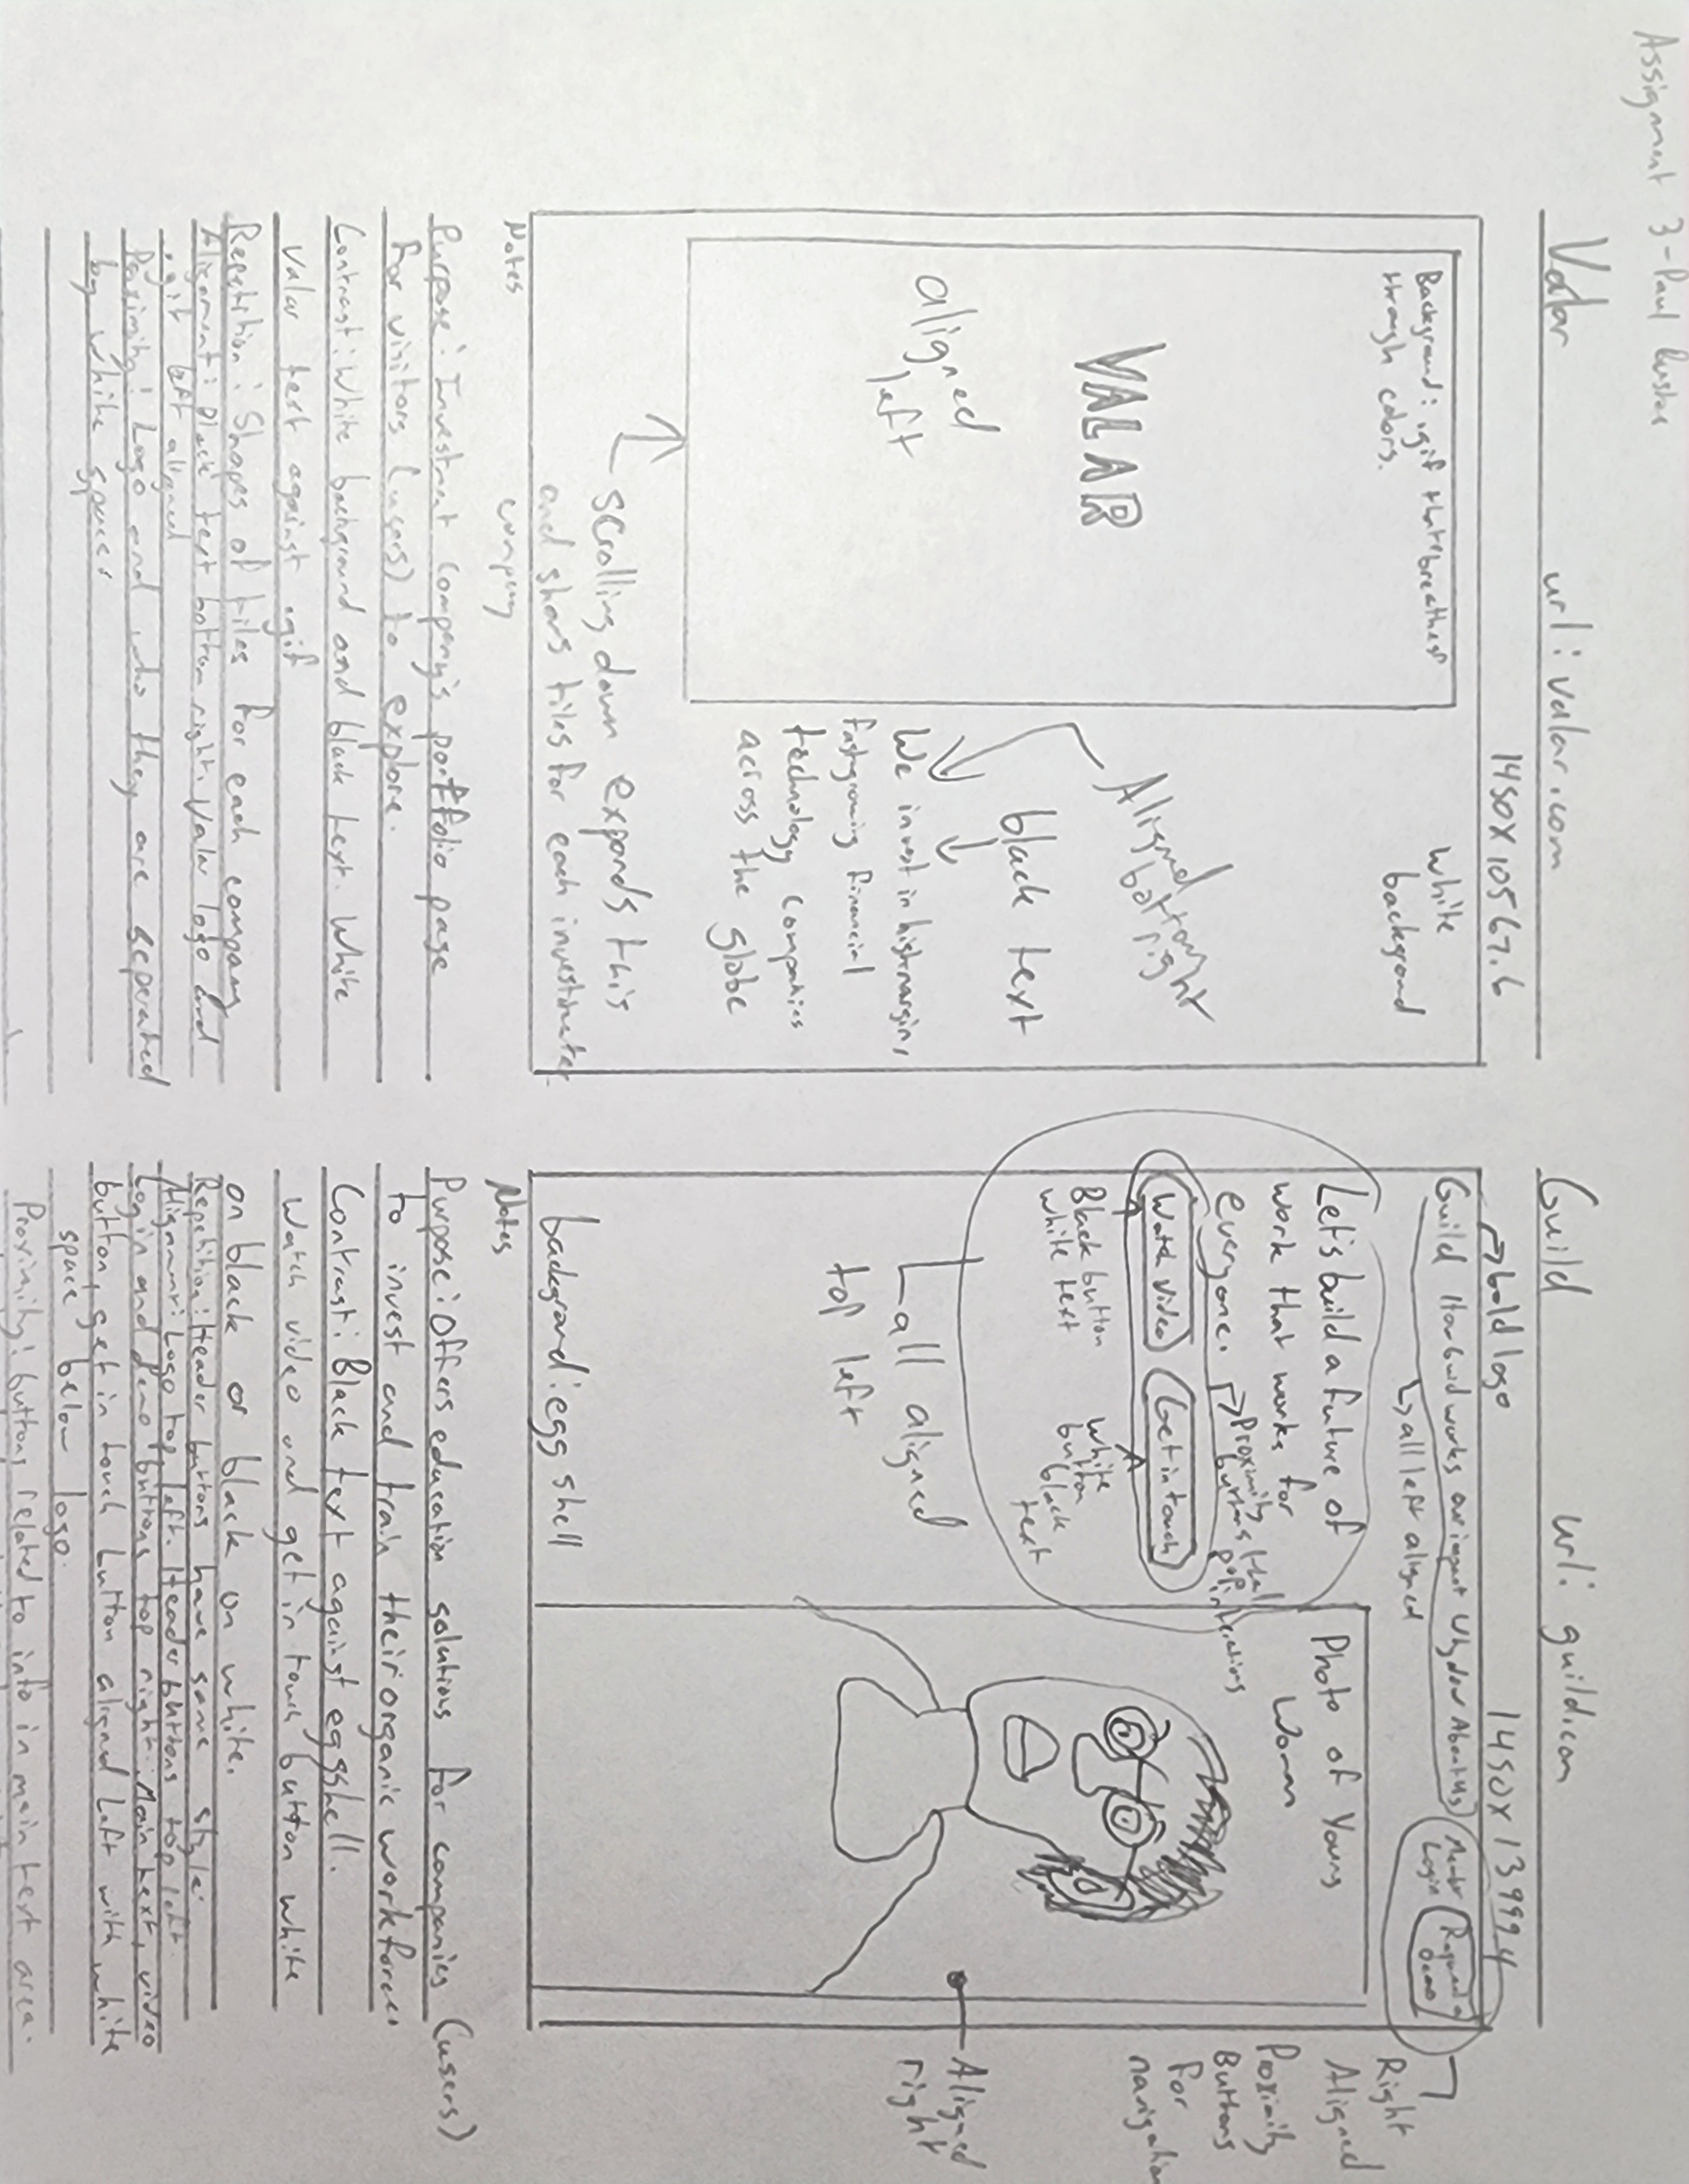 Assignment 3 - Paul
Valar url: valar.com
1450 x 10567.6
Background: .gif that "breathes"
through colors.
white
background
VALAR
aligned
left
Aligned
bottom
right
black text
We invest in high-margin,
fast-growing financial
technology companies
across the globe
scrolling down expands this
and shows tiles for each
company
Notes
Purpose: Investment company's portfolio page
for visitors (users) to explore.
Contrast: White background and black text. White
Valar text against .gif
Repetition: Shapes of tiles for each company
Alignment: Black text bottom right. Valar logo and
.gif left aligned
Proximity: Logo and who they are seperated
by white space.
Guild url: guild.com
bold logo
1450 x 13999.4
Guild How Guild works Our impact Why Now About Us
Member
Login
Request a
Demo
all left aligned
Right
Aligned
Proximity
Buttons
for
navigation
Let's build a future of
work that works for
everyone.
Proximity
buttons that
pop
Watch Video Get in touch
Black button
white text
white
button
black
text
all aligned
top left
Photo of Young
Woman
Aligned
right
background: egg shell
Notes
Purpose: Offers education solutions for companies (users)
to invest and train their organic workforce.
Contrast: Black text against eggshell.
Watch video and get in touch button white
on black or black on white.
Repetition: Header buttons have same style.
Alignment: Logo top left. Header buttons top left
Login and demo buttons top right. Main text, video
button, get in touch button aligned left with white
space below logo.
Proximity: buttons related to info in main text area.